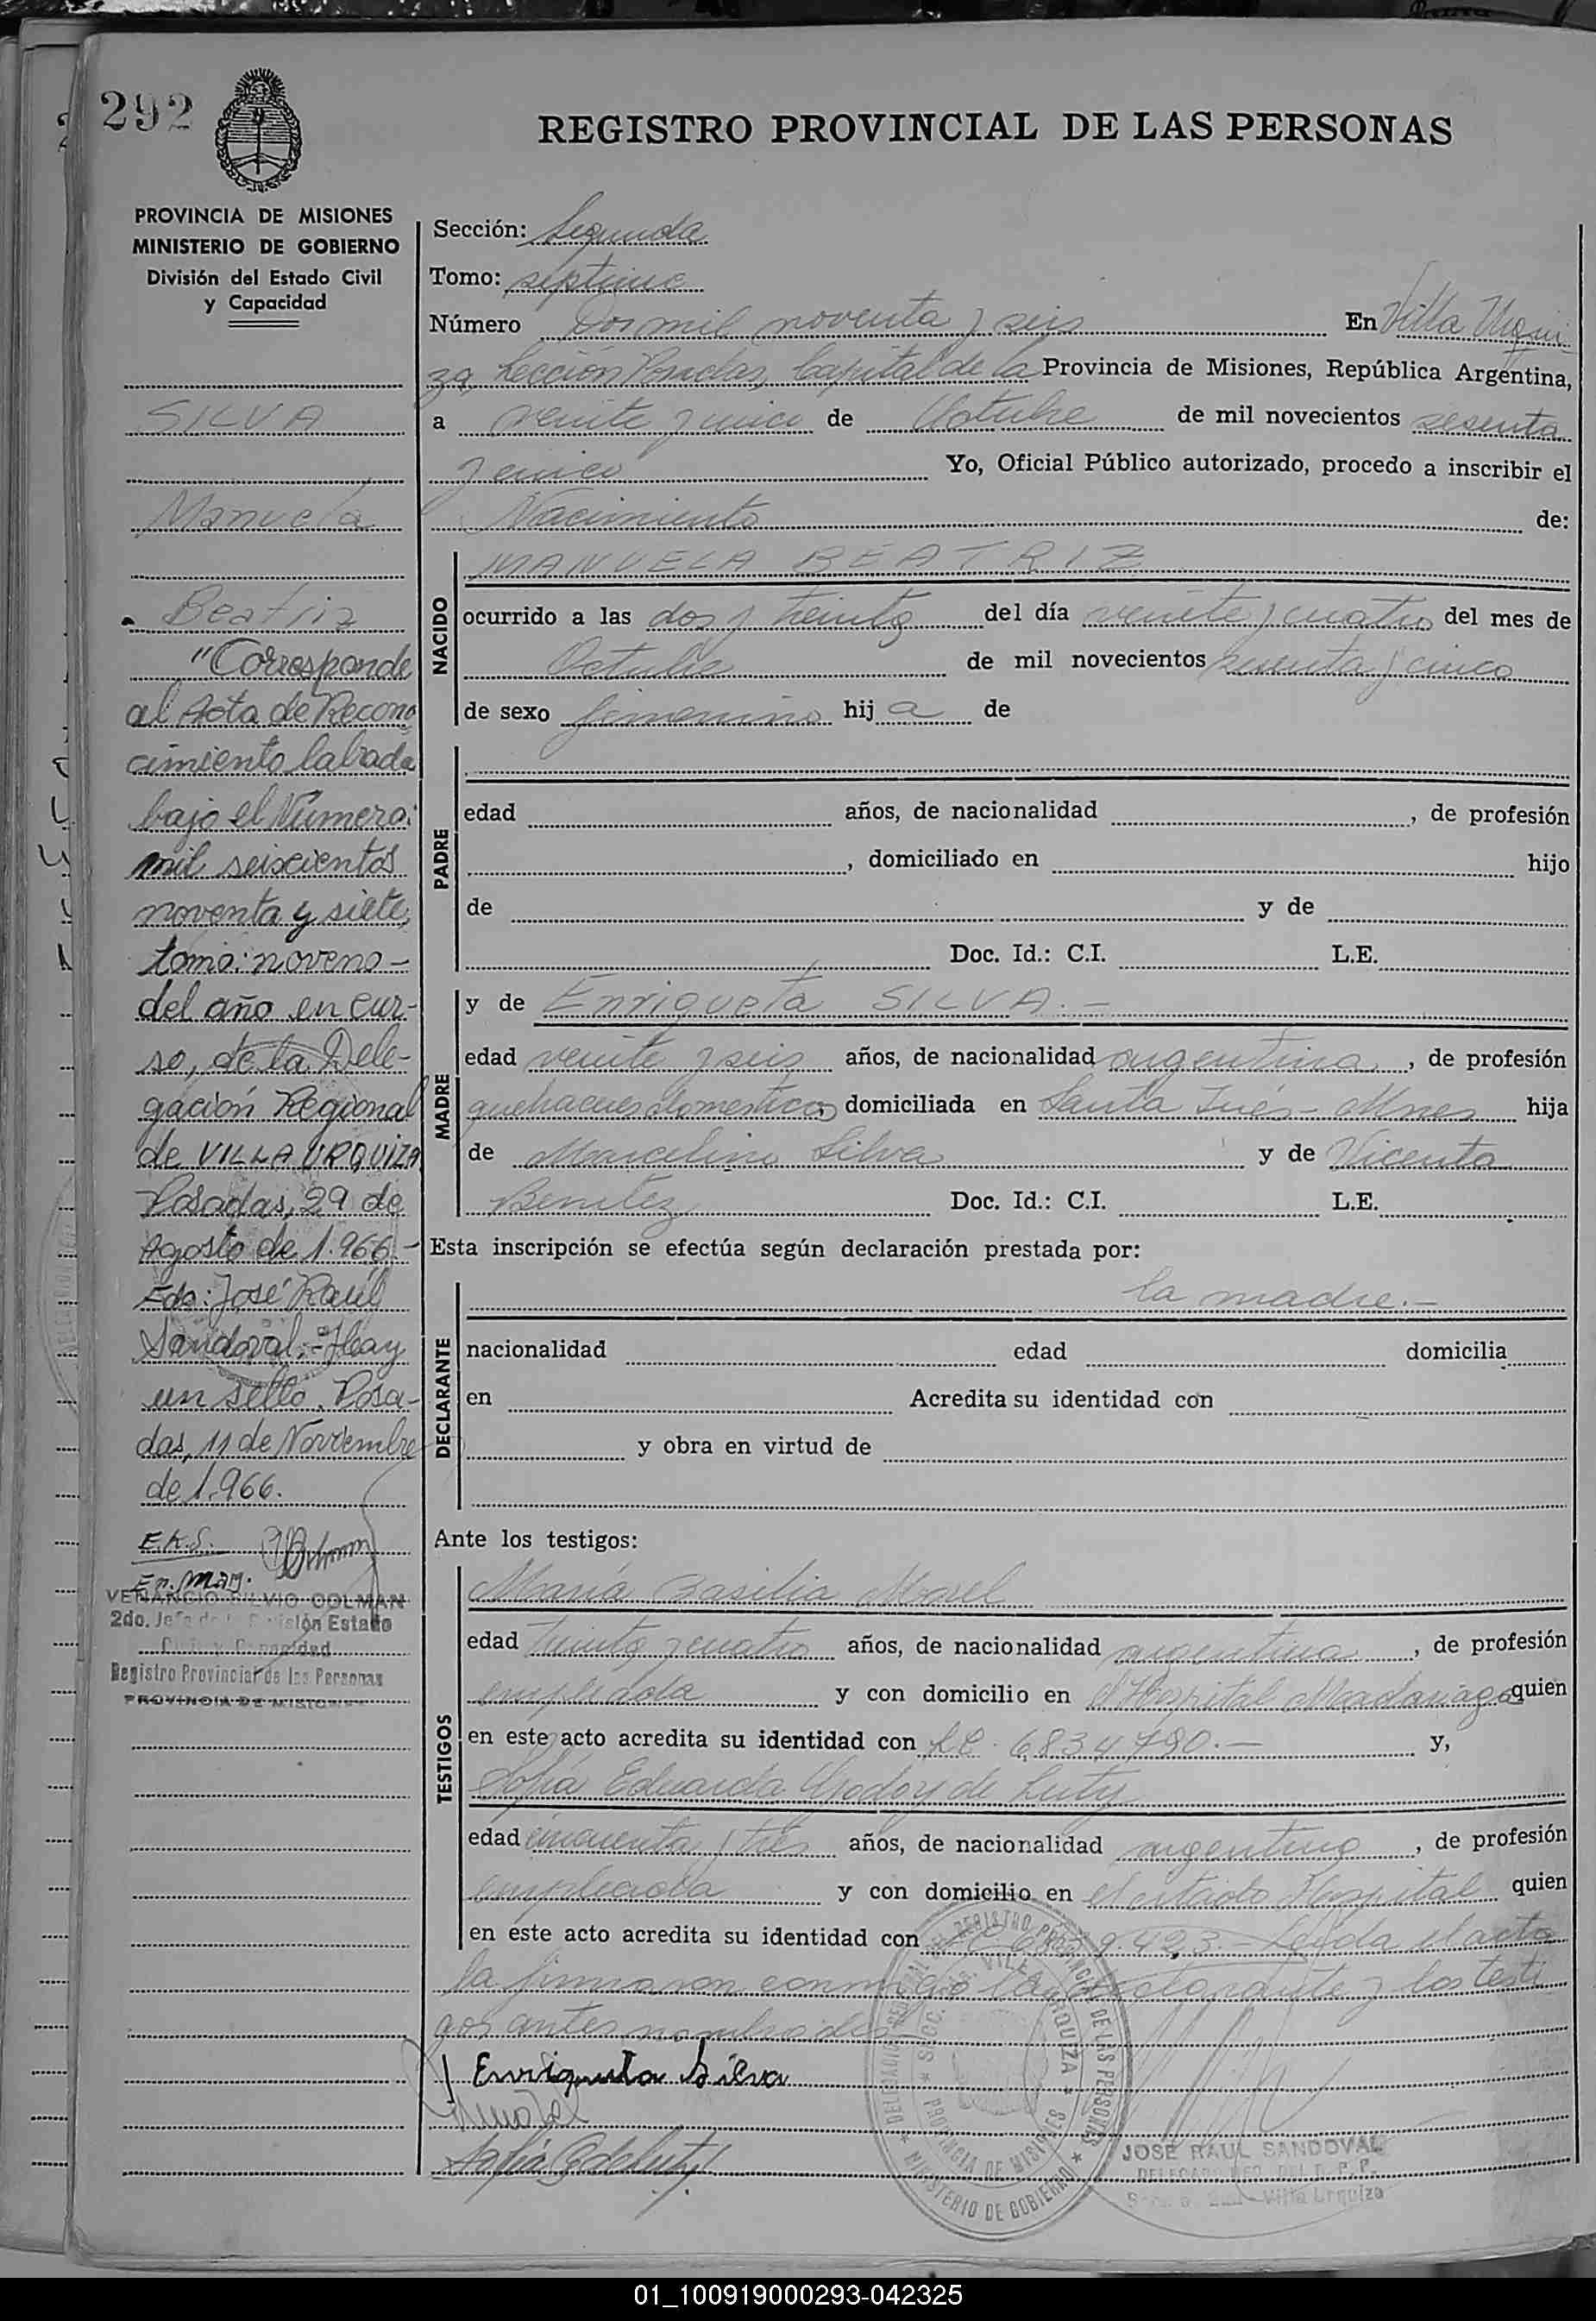 292
REGISTRO PROVINCIAL DE LAS PERSONAS
PROVINCIA DE MISIONES
MINISTERIO DE GOBIERNO
División del Estado Civil
y Capacidad
SILVA
Manuela
Beatriz
"Corresponde
al Acta de Recono
cimiento labrada
bajo el Número:
mil seiscientos
noventa y siete,
tomo: noveno-
del año en cur-
so, de la Dele-
gación Regional
de VILLA URQUIZA
Posadas, 29 de
Agosto de 1.966.-
Fdo: José Raúl
Sandoval.- Hay
un sello. Posa-
das, 11 de Noviembre
de 1.966.
E.K.S.
En. Mar.
VENANCIO SILVIO COLMAN
2do. Jefe de la División Estado
Civil y Capacidad
Registro Provincial de las Personas
PROVINCIA DE MISIONES
Sección: Segunda
Tomo: septimo
Número Dos mil noventa y seis En Villa Urqui
za, Sección Posadas, Capital de la Provincia de Misiones, República Argentina,
a veinte y cinco de Octubre de mil novecientos sesenta
y cinco Yo, Oficial Público autorizado, procedo a inscribir el
Nacimiento de:
NACIDO
MANUELA BEATRIZ
ocurrido a las dos y treinta del día veinte y cuatro del mes de
Octubre de mil novecientos sesenta y cinco
de sexo femenino hij a de
PADRE
edad años, de nacionalidad , de profesión
, domiciliado en hijo
de y de
Doc. Id.: C.I. L.E.
MADRE
y de Enriqueta SILVA.-
edad veinte y seis años, de nacionalidad argentina, de profesión
quehaceres domesticos domiciliada en Santa Inés - Mnes hija
de Marcelino Silva y de Vicenta
Benitez Doc. Id.: C.I. L.E.
Esta inscripción se efectúa según declaración prestada por:
DECLARANTE
la madre.-
nacionalidad edad domicilia
en Acredita su identidad con
y obra en virtud de
Ante los testigos:
TESTIGOS
María Basilia Morel
edad treinta y cuatro años, de nacionalidad argentina, de profesión
empleada y con domicilio en el Hospital Madariaga quien
en este acto acredita su identidad con LC. 6834790.- y,
Sofía Eduarda Godoy de Luty
edad cincuenta y tres años, de nacionalidad argentina, de profesión
empleada y con domicilio en el citado Hospital quien
en este acto acredita su identidad con 9.423.- Leída el acta
la firmaron conmigo la declarante y los testi
gos antes nombrados
Enriqueta Silva
JOSE RAUL SANDOVAL
Villa Urquiza
REGISTRO PROVINCIAL DE LAS PERSONAS
VILLA URQUIZA
PROVINCIA DE MISIONES
MINISTERIO DE GOBIERNO
01_100919000293-042325